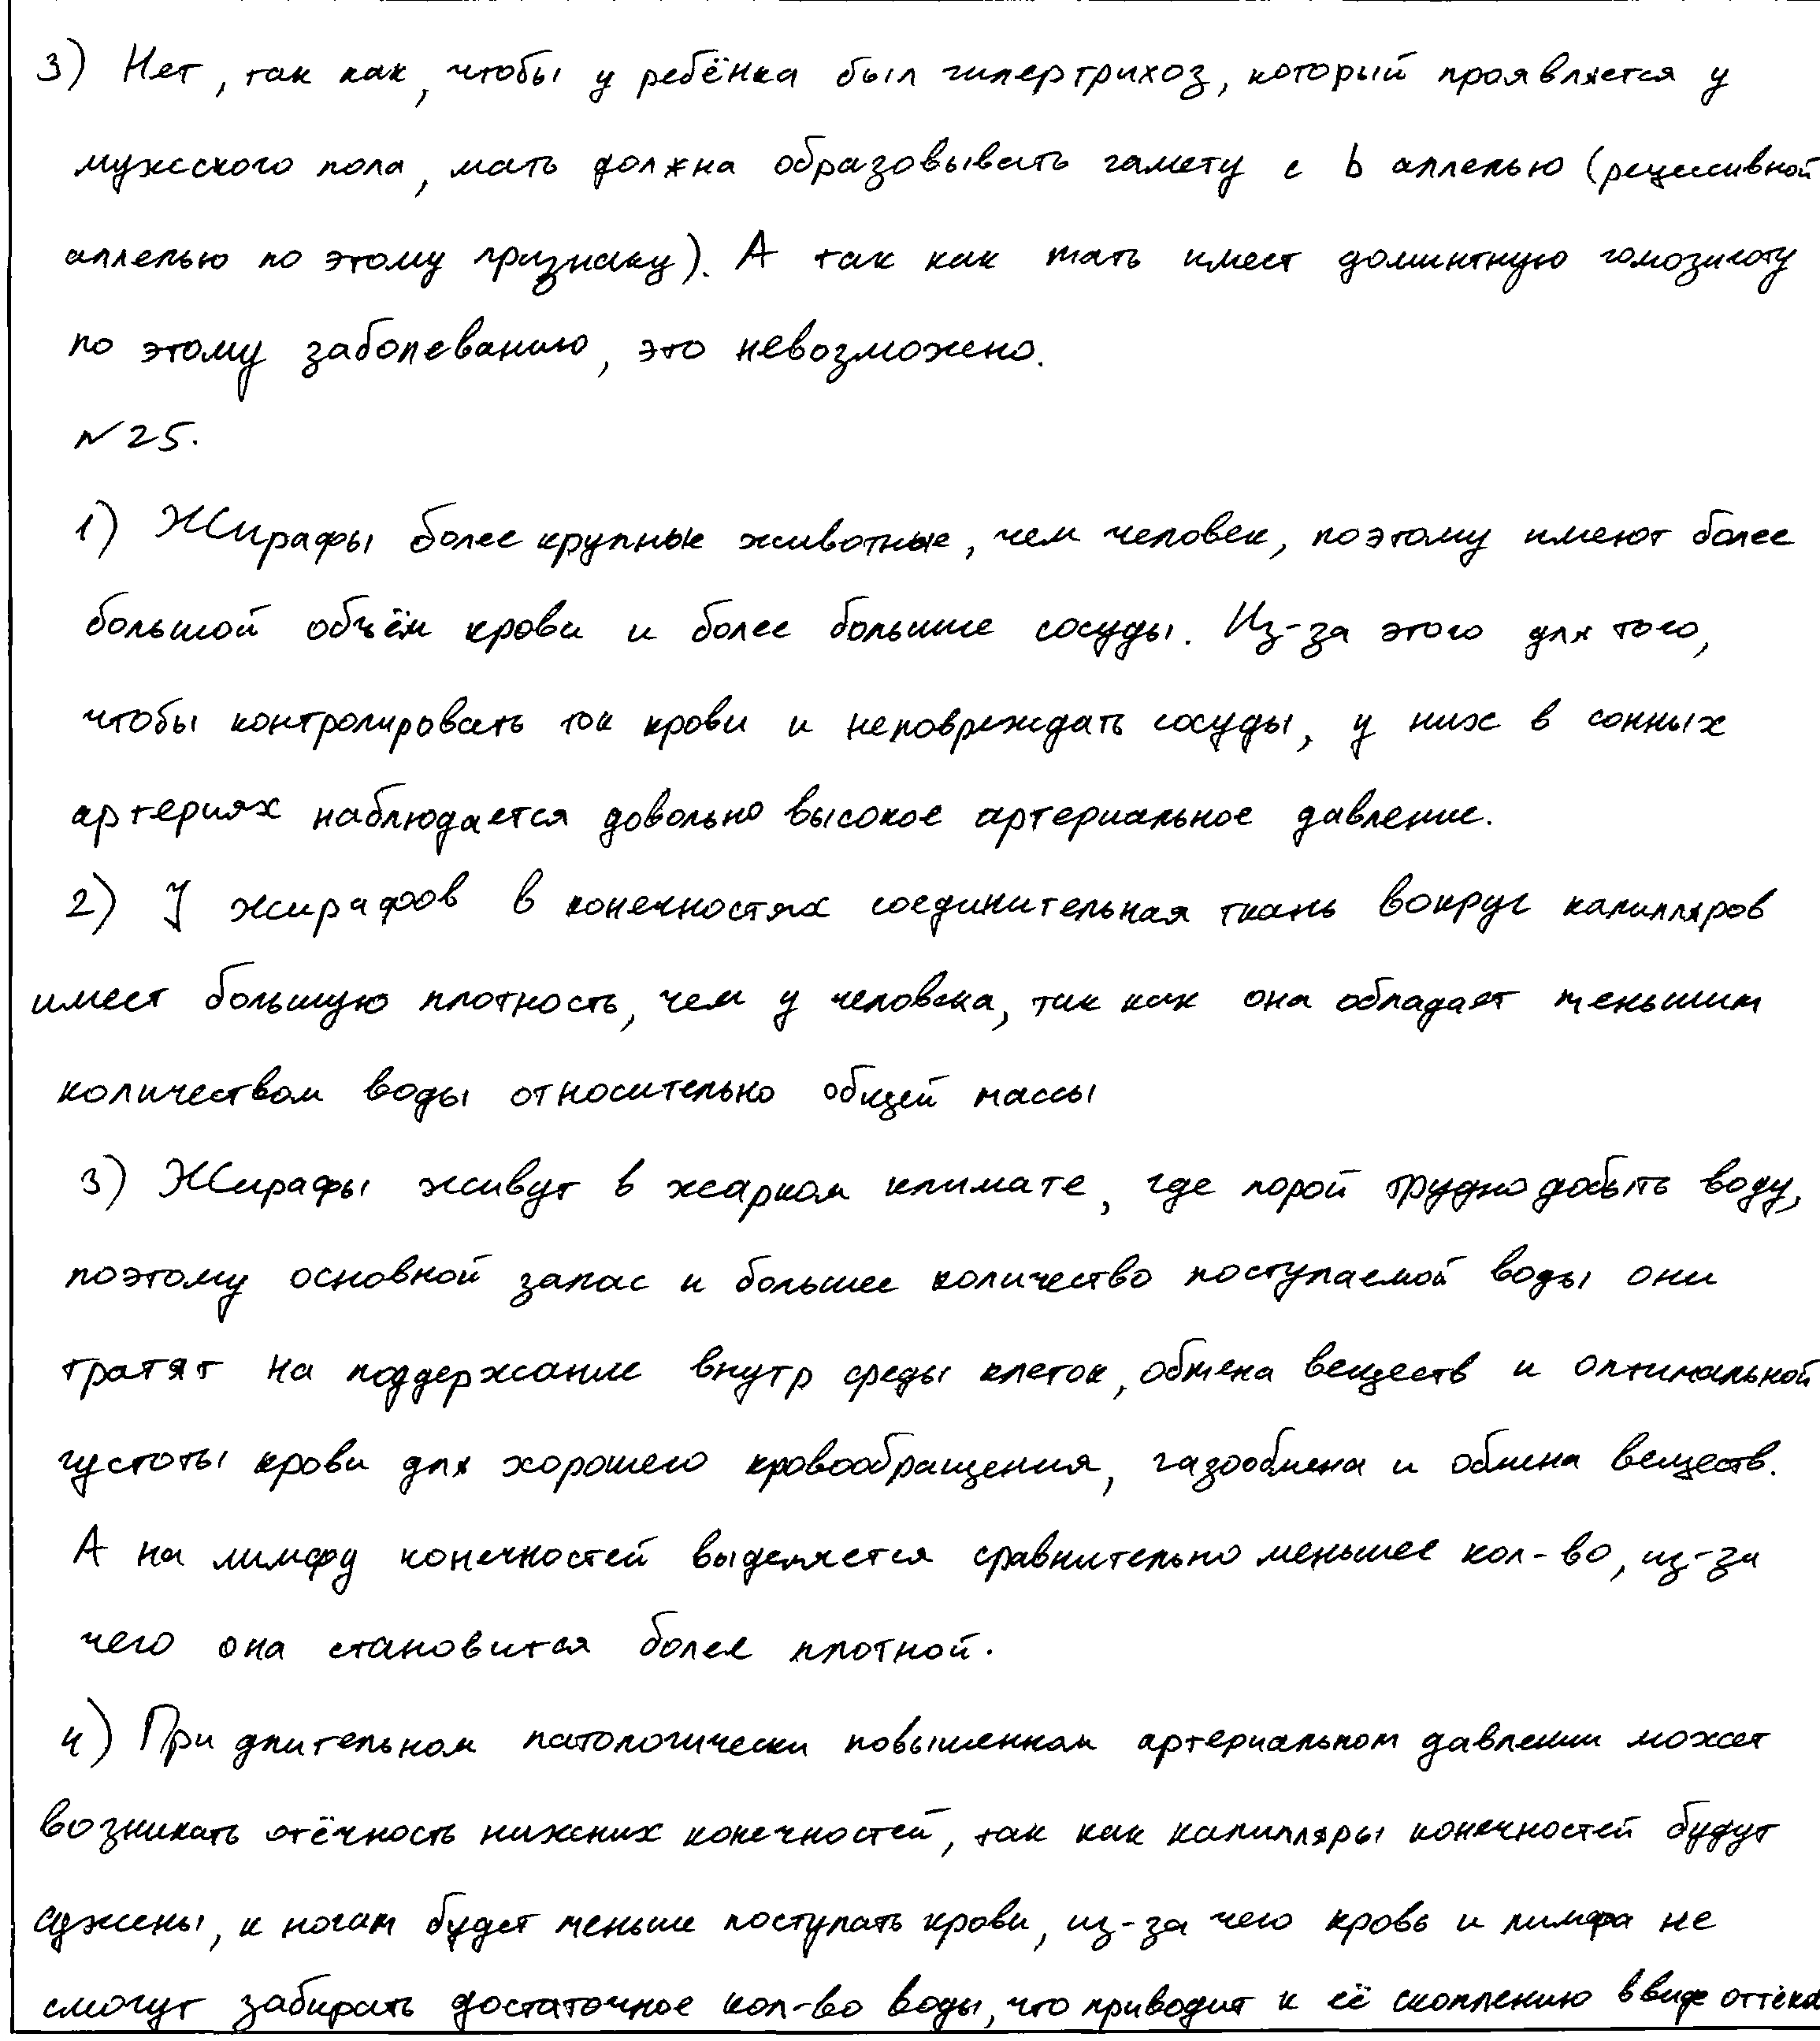 3) Нет, так как, чтобы у ребёнка был гипертрихоз, который проявляется у
мужского пола, мать должна образовывать гамету с b аллелью (рецессивной
аллелью по этому признаку). А так как мать имеет доминтную гомозиготу
по этому заболеванию, это невозможно.
№25.
1) Жирафы более крупные животные, чем человек, поэтому имеют более
большой объём крови и более большие сосуды. Из-за этого для того,
чтобы контролировать ток крови и неповреждать сосуды, у них в сонных
артериях наблюдается довольно высокое артериальное давление.
2) У жирафов в конечностях соединительная ткань вокруг капилляров
имеет большую плотность, чем у человека, так как она обладает меньшим
количеством воды относительно общей массы
3) Жирафы живут в жарком климате, где порой трудно добыть воду,
поэтому основной запас и большее количество поступаемой воды они
тратят на поддержание внутр среды клеток, обмена веществ и оптимальной
густоты крови для хорошего кровообращения, газообмена и обмена веществ.
А на лимфу конечностей выделяется сравнительно меньшее кол-во, из-за
чего она становится более плотной.
4) При длительном патологически повышенном артериальном давлении может
возникать отёчность нижних конечностей, так как капилляры конечностей будут
сужены, к ногам будет меньше поступать крови, из-за чего кровь и лимфа не
смогут забирать достаточное кол-во воды, что приводит к её скоплению в виде оттёка